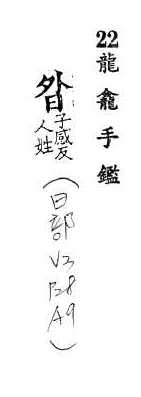 22龍龕手鑑
子感反
人姓
(日部V2P28A9)